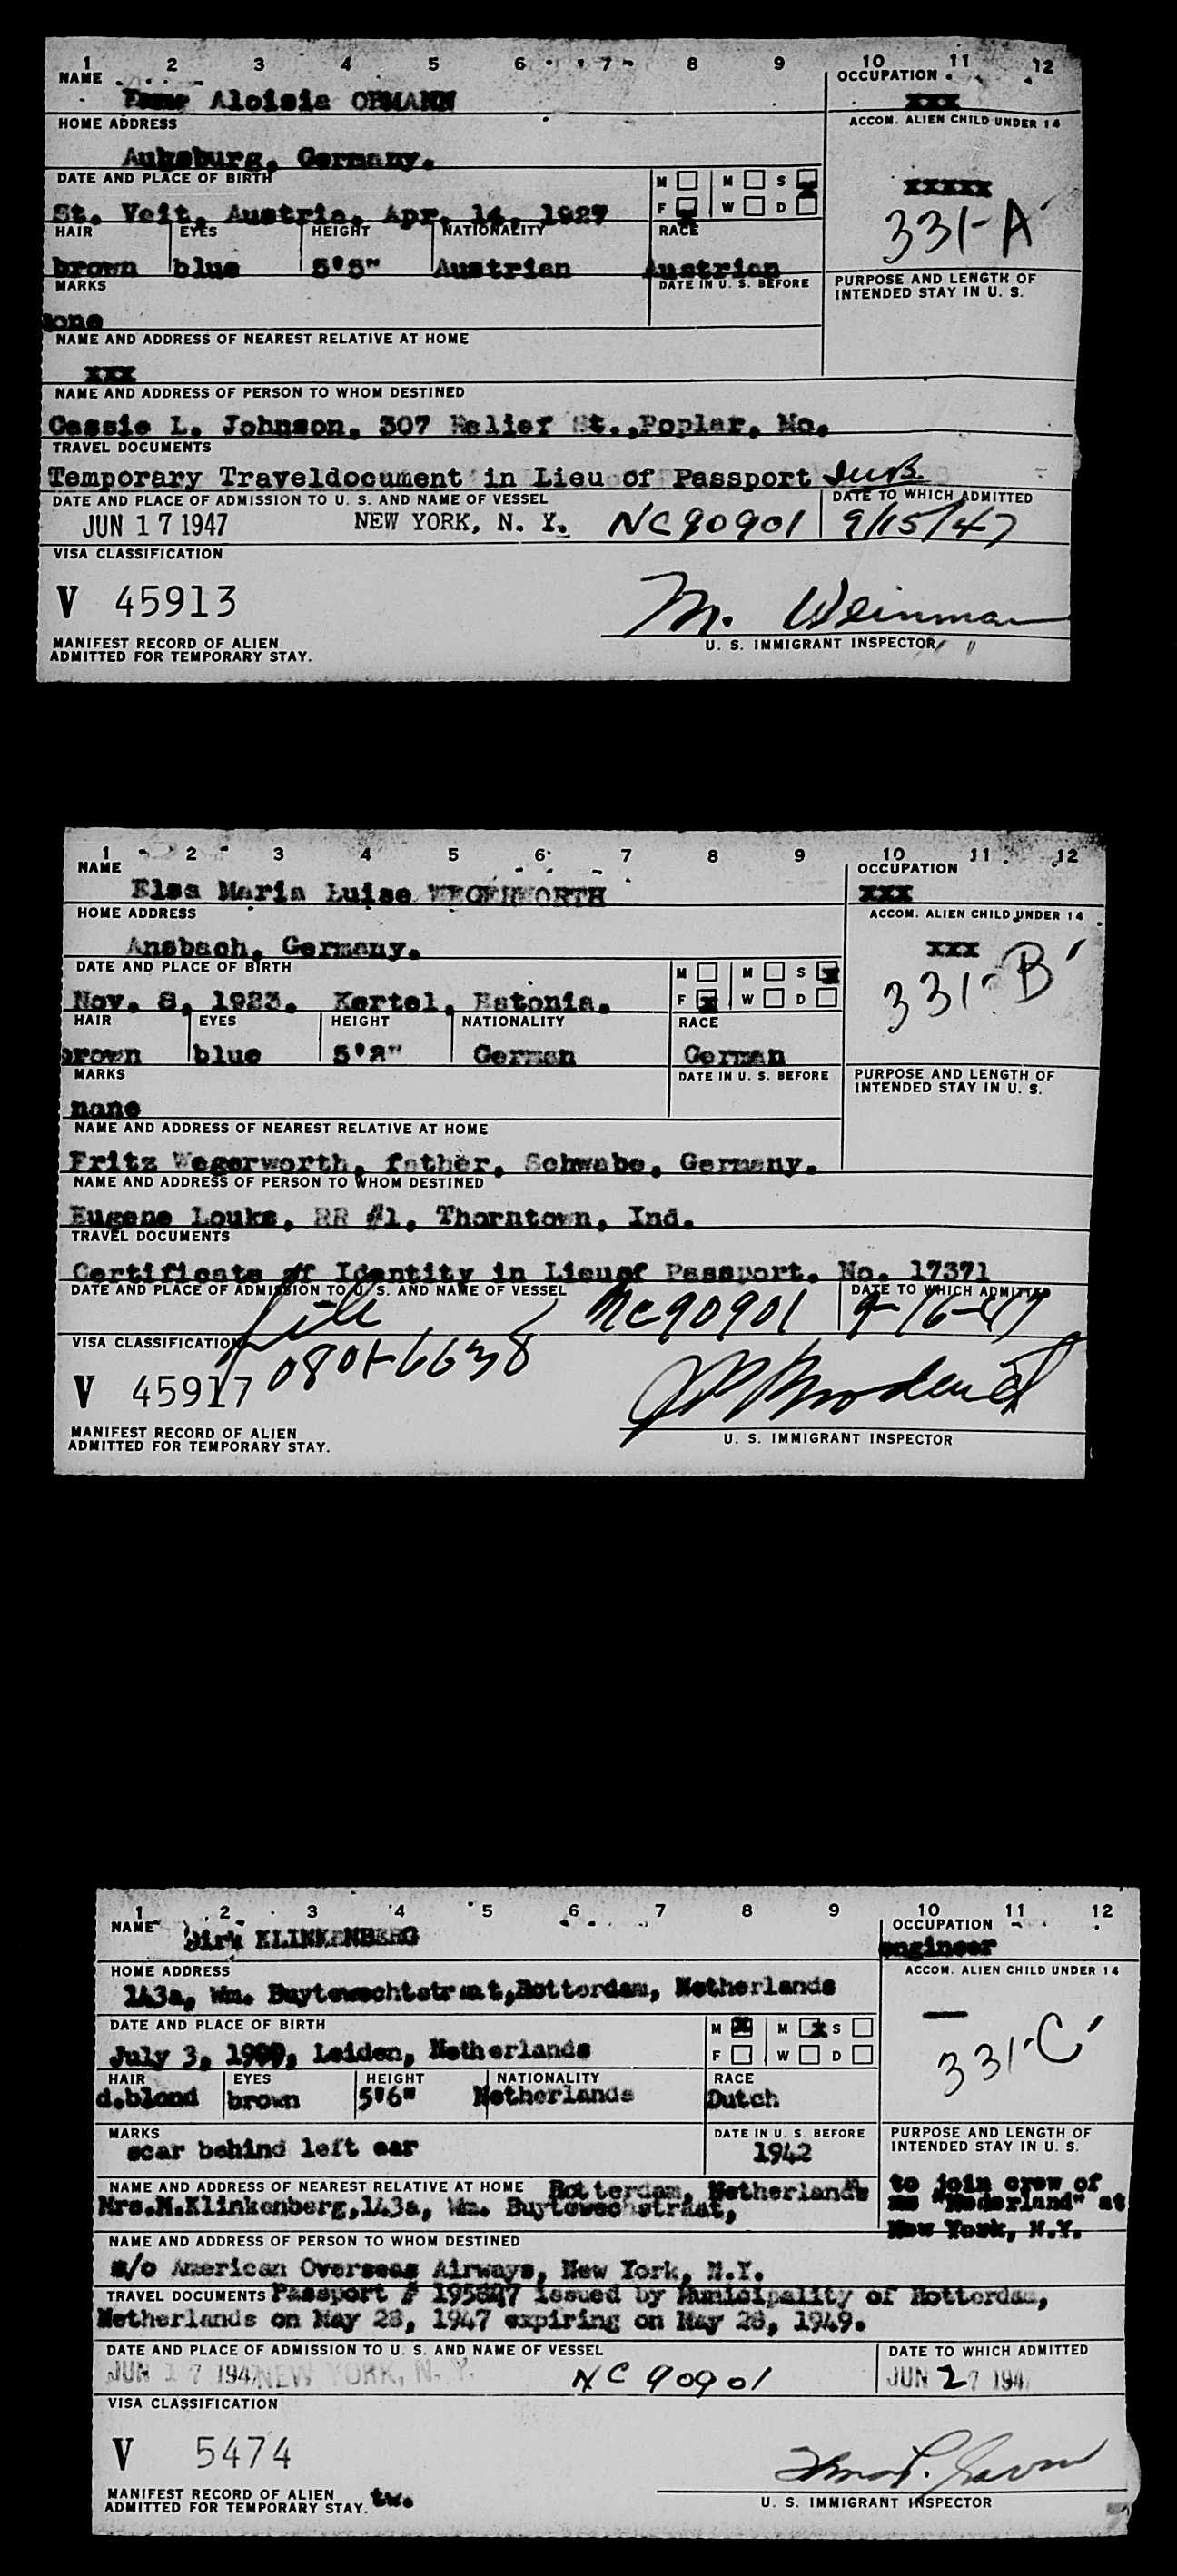 1 2 3 4 5 6 7 8 9 10 11 12
NAME OCCUPATION
Aloisia OBMANN xxx
HOME ADDRESS ACCOM. ALIEN CHILD UNDER 14
Auhsburg, Germany.
DATE AND PLACE OF BIRTH M M S xxxxx
St. Veit, Austria, Apr. 14, 1927 F W D 331-A
HAIR EYES HEIGHT NATIONALITY RACE
brown blue 5'5" Austrian Austrian
MARKS DATE IN U. S. BEFORE PURPOSE AND LENGTH OF INTENDED STAY IN U. S.
none
NAME AND ADDRESS OF NEAREST RELATIVE AT HOME
xxx
NAME AND ADDRESS OF PERSON TO WHOM DESTINED
Cassie L. Johnson, 307 Relief St.,Poplar, Mo.
TRAVEL DOCUMENTS
Temporary Traveldocument in Lieu of Passport
DATE AND PLACE OF ADMISSION TO U. S. AND NAME OF VESSEL DATE TO WHICH ADMITTED
JUN 17 1947 NEW YORK, N. Y. NC90901 9/15/47
VISA CLASSIFICATION
V 45913 M. Weinman
MANIFEST RECORD OF ALIEN
ADMITTED FOR TEMPORARY STAY. U. S. IMMIGRANT INSPECTOR
1 2 3 4 5 6 7 8 9 10 11 12
NAME OCCUPATION
Elsa Maria Luise WEGERWORTH xxx
HOME ADDRESS ACCOM. ALIEN CHILD UNDER 14
Ansbach, Germany. xxx
DATE AND PLACE OF BIRTH M M S 331-B
Nov. 8, 1923. Kertel, Estonia. F W D
HAIR EYES HEIGHT NATIONALITY RACE
brown blue German German
MARKS DATE IN U. S. BEFORE PURPOSE AND LENGTH OF INTENDED STAY IN U. S.
none
NAME AND ADDRESS OF NEAREST RELATIVE AT HOME
Fritz Wegerworth, father, Schwabe, Germany.
NAME AND ADDRESS OF PERSON TO WHOM DESTINED
Eugene Louks, RR #1, Thorntown, Ind.
TRAVEL DOCUMENTS
Certificate of Identity in Lieuof Passport. No. 17371
DATE AND PLACE OF ADMISSION TO U. S. AND NAME OF VESSEL DATE TO WHICH ADMITTED
File NC90901 9-16-47
VISA CLASSIFICATION 0801-6638
V 45917
MANIFEST RECORD OF ALIEN
ADMITTED FOR TEMPORARY STAY. U. S. IMMIGRANT INSPECTOR
1 2 3 4 5 6 7 8 9 10 11 12
NAME OCCUPATION
Dirk KLINKENBERG engineer
HOME ADDRESS ACCOM. ALIEN CHILD UNDER 14
143a, Wm. Buytewechtstraat,Rotterdam, Netherlands
DATE AND PLACE OF BIRTH M M S
July 3, Leiden, Netherlands F W D 331-C
HAIR EYES HEIGHT NATIONALITY RACE
d.blond brown 5'6" Netherlands Dutch
MARKS DATE IN U. S. BEFORE PURPOSE AND LENGTH OF INTENDED STAY IN U. S.
scar behind left ear 1942
NAME AND ADDRESS OF NEAREST RELATIVE AT HOME Rotterdam, Netherlands to join crew of
Mrs.M.Klinkenberg,143a, Wm. Buytewechstraat, ms "Nederland" at
NAME AND ADDRESS OF PERSON TO WHOM DESTINED New York, N.Y.
c/o American Overseas Airways, New York, N.Y.
TRAVEL DOCUMENTS Passport # issued by Municipality of Rotterdam,
Netherlands on May 28, 1947 expiring on May 28, 1949.
DATE AND PLACE OF ADMISSION TO U. S. AND NAME OF VESSEL DATE TO WHICH ADMITTED
JUN 17 1947 NEW YORK, N. Y. NC90901 JUN 27 194
VISA CLASSIFICATION
V 5474
MANIFEST RECORD OF ALIEN
ADMITTED FOR TEMPORARY STAY. tw. U. S. IMMIGRANT INSPECTOR